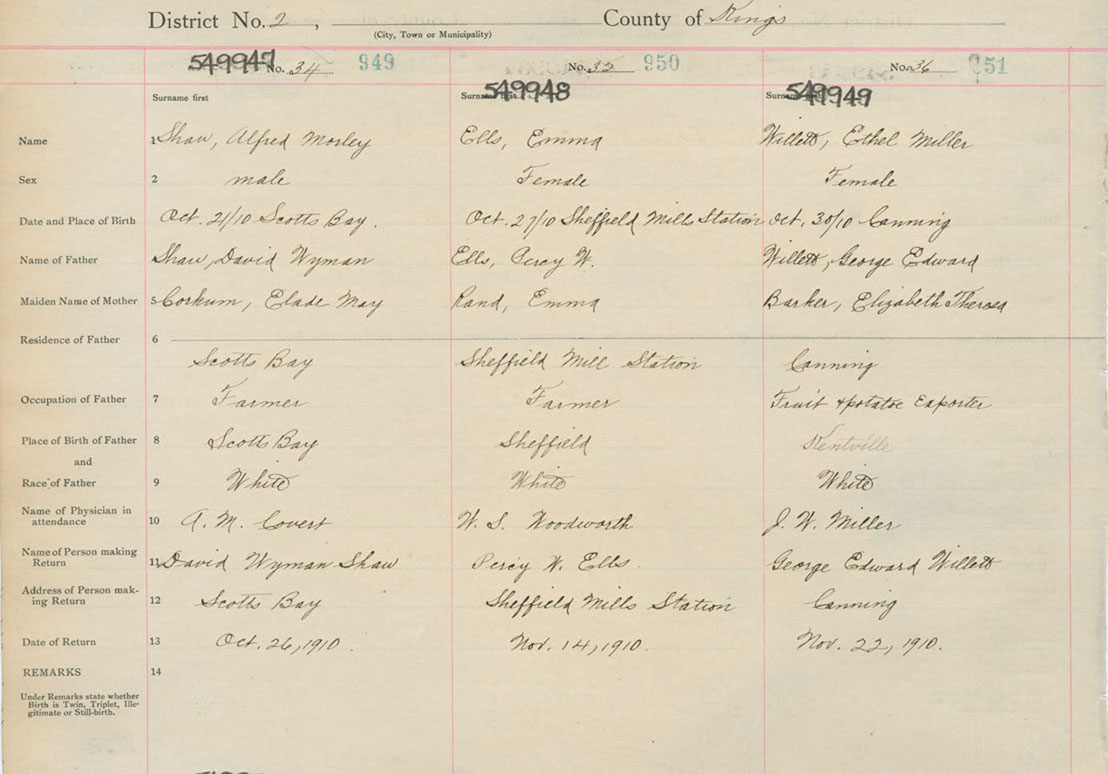 District No. 2, County of Kings
(City, Town or Municipality)
549947 No. 34 949 No. 35 950 No. 36 951
Surname first Surname first 549948 Surname first 549949
Name 1 Shaw, Alfred Morley Ells, Emma Willett, Ethel Miller
Sex 2 male Female Female
Date and Place of Birth Oct. 21/10 Scotts Bay. Oct. 27/10 Sheffield Mills Station Oct. 30/10 Canning
Name of Father Shaw, David Wyman Ells, Percy W. Willett, George Edward
Maiden Name of Mother 5 Corkum, Elade May Rand, Emma Barker, Elizabeth Theresa
Residence of Father 6
Scotts Bay Sheffield Mill Station Canning
Occupation of Father 7 Farmer Farmer Fruit & potatoe Exporter
Place of Birth of Father 8 Scotts Bay Sheffield Kentville
and
Race of Father 9 White White White
Name of Physician in
attendance 10 A. M. Covert W. S. Woodworth J. W. Miller
Name of Person making
Return 11 David Wyman Shaw Percy W. Ells. George Edward Willett
Address of Person mak-
ing Return 12 Scotts Bay Sheffield Mills Station Canning
Date of Return 13 Oct. 26, 1910. Nov. 14, 1910. Nov. 22, 1910.
REMARKS 14
Under Remarks state whether
Birth is Twin, Triplet, Ille-
gitimate or Still-birth.